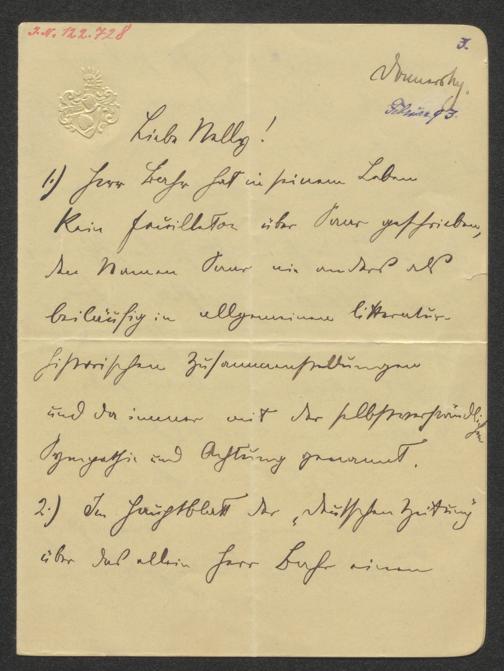 I.N. 122.728
3.
Donnerstg.
Februar 93.
Liebe Nelly!
1.) Herr Bahr hat in seinem Leben
kein Feuilleton über Saar geschrieben,
den Namen Saar nie anders als
beiläufig in allgemeinen litteratur-
historischen Zusammenstellungen
und da immer mit der selbstverständlichen
Sympathie und Achtung genannt.
2.) Im Hauptblatt der „Deutschen Zeitung"
über das allein Herr Bahr einen